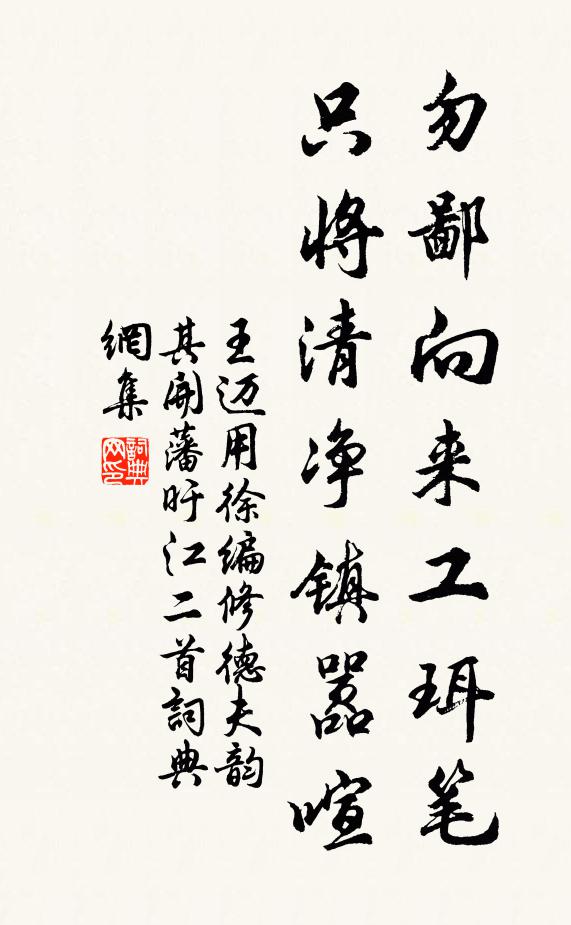 勿鄙向来工珥笔
只将清净镇嚣喧
王迈用徐编修德夫韵
其开藩旴江二首词典
網集
詞典
网印